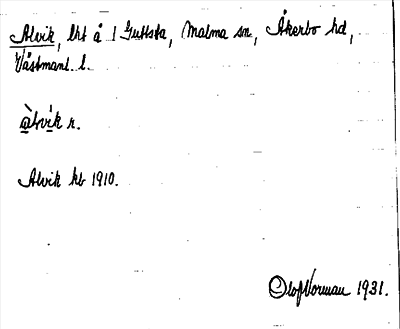 Alvik, lht å 1 Guttsta, Malma sn, Åkerbo hd,
Västmanl. l.
àlvìk n.
Alvik kb 1910.
Olof Norman 1931.